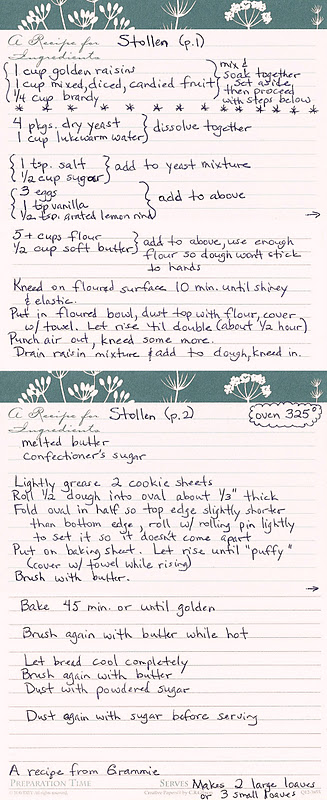 A Recipe for Stollen (p.1)
Ingredients
1 cup golden raisins
1 cup mixed, diced, candied fruit
1/4 cup brandy
mix &
soak together
Set aside,
then proceed
with steps below
* * * * * * * * * * * * * * *
4 pkgs. dry yeast
1 cup lukewarm water
dissolve together
1 tsp. salt
1/2 cup sugar
add to yeast mixture
3 eggs
1 tsp vanilla
1/2 tsp. grated lemon rind
add to above
→
5+ cups flour
1/2 cup soft butter
add to above, use enough
flour so dough won't stick
to hands
Knead on floured surface 10 min. until shiney
& elastic.
Put in floured bowl, dust top with flour, cover
w/ towel. Let rise 'til double (about 1/2 hour)
Punch air out, knead some more.
Drain raisin mixture & add to dough, kneed in.
A Recipe for Stollen (p.2)
oven 325°
Ingredients
melted butter
confectioner's sugar
Lightly grease 2 cookie sheets
Roll 1/2 dough into oval about 1/3" thick
Fold oval in half so top edge slightly shorter
than bottom edge, roll w/ rolling pin lightly
to set it so it doesn't come apart
Put on baking sheet. Let rise until "puffy"
(cover w/ towel while rising)
Brush with butter.
→
Bake 45 min. or until golden
Brush again with butter while hot
Let bread cool completely
Brush again with butter
Dust with powdered sugar
Dust again with sugar before serving
A recipe from Grammie
Preparation Time
Serves
Makes 2 large loaves
or 3 small loaves